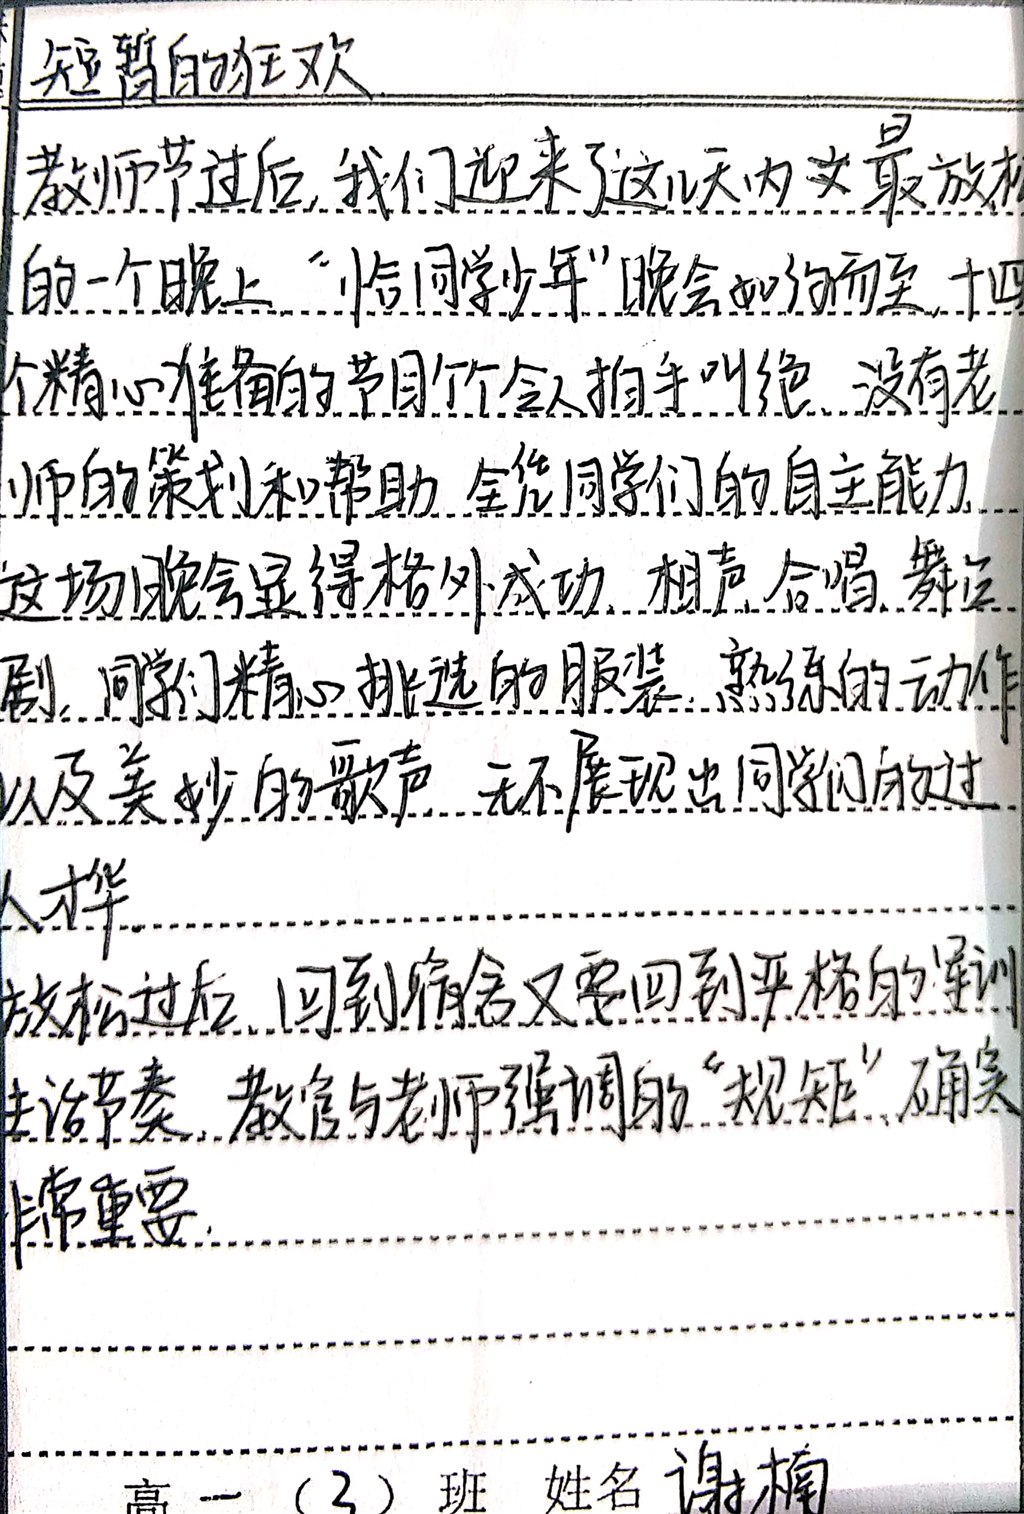 短暂的狂欢
教师节过后,我们迎来了这几天内又最放松
的一个晚上,“恰同学少年”晚会如约而至,十四
个精心准备的节目个个令人拍手叫绝、没有老
师的策划和帮助,全凭同学们的自主能力
这场晚会显得格外成功、相声、合唱、舞台
剧、同学们精心挑选的服装、熟练的动作
以及美妙的歌声,无不展现出同学们的过
人才华
放松过后,回到宿舍又要回到严格的军训
生活节奏,教官与老师强调的“规矩”、确实
非常重要.
高一(3)班 姓名 谢楠